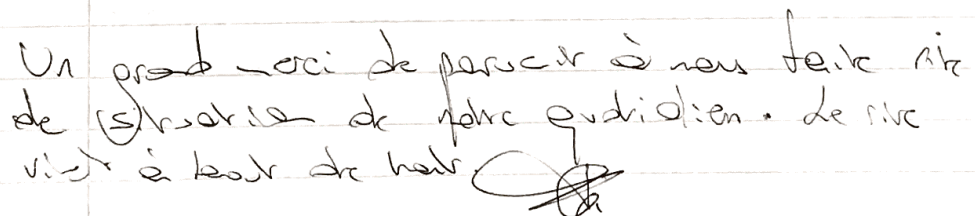 Un grand merci de parvenir à nous faire rire
de (s) situation de notre quotidien. Le rire
vient à bout de tout.